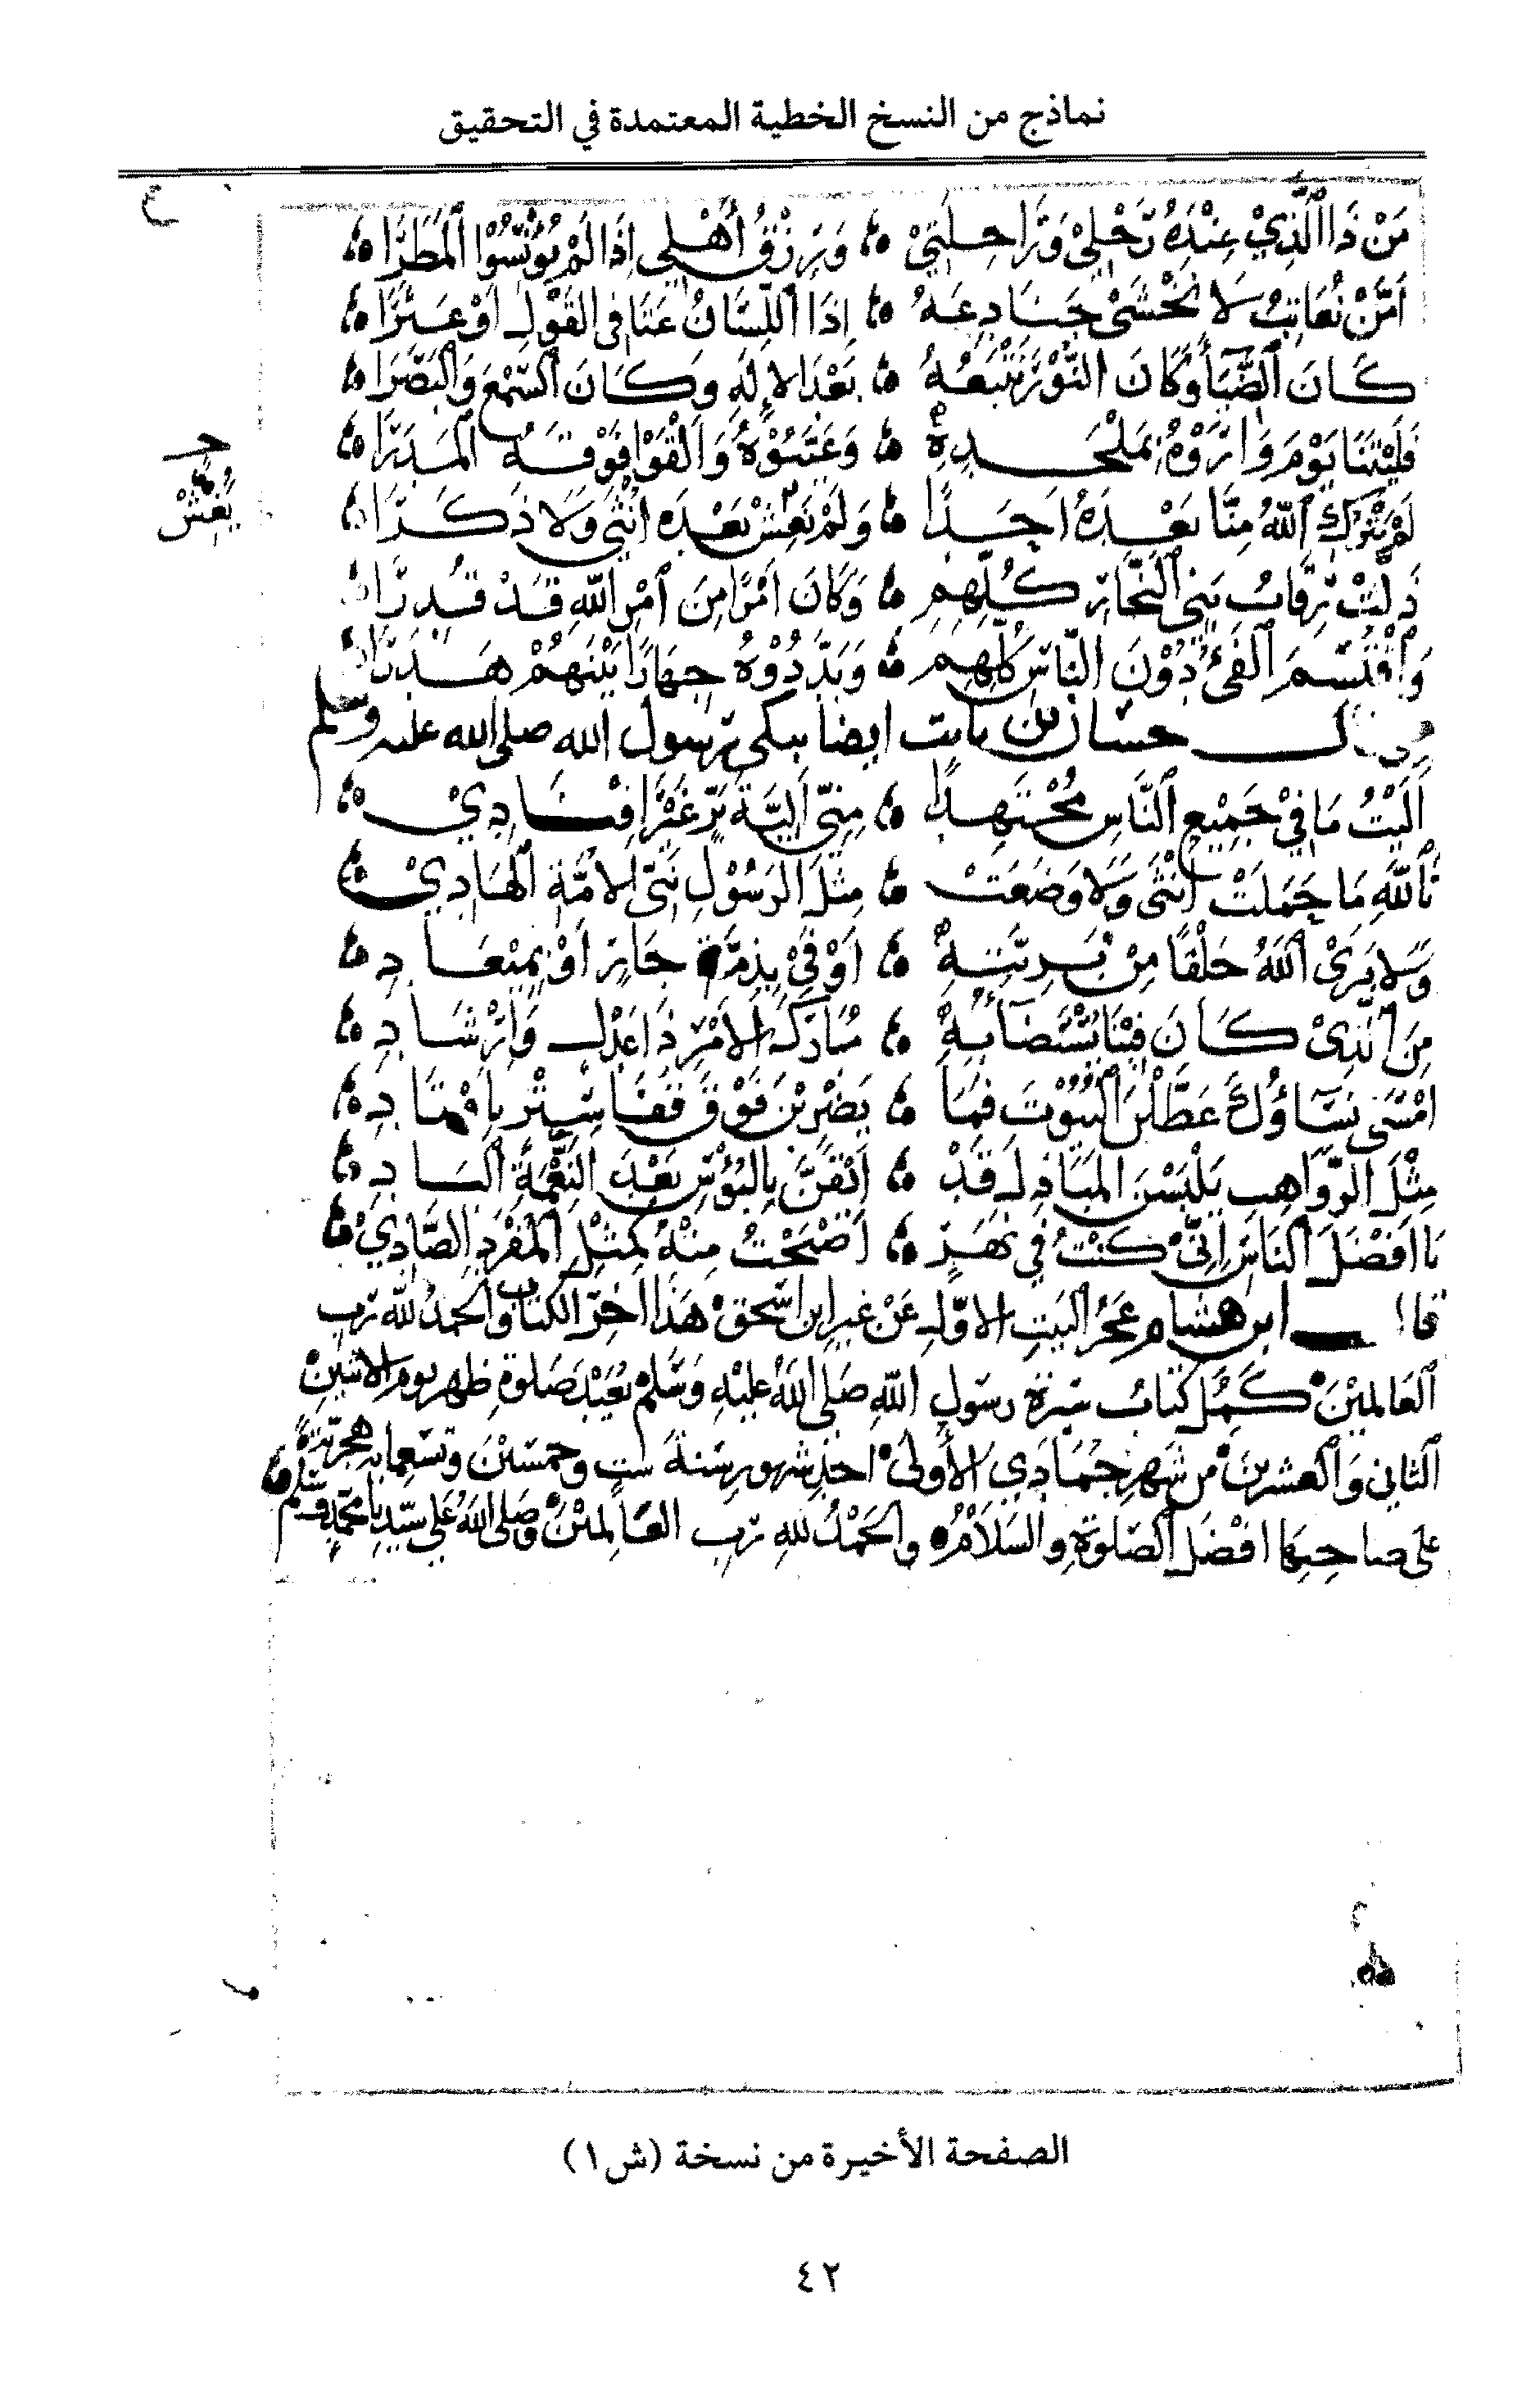 نماذج من النسخ الخطية المعتمدة في التحقيق
مَنْ ذَا الَّذِيْ عِنْدَهُ رَحْلِيْ وَرَاحِلَتِيْ ۞ وَرِزْقُ أَهْلِي إِذَا لَمْ يُؤْنِسُوْا الْمَطَرَا
أَمْ مَنْ نُعَاتِبُ لَا نَخْشَىْ جَنَادِعَهُ ۞ إِذَا اللِّسَانُ عَتَا فِي القَوْلِ أَوْ عَثَرَا
كَانَ الضِّيَاءَ وَكَانَ النُّوْرَ نَتْبَعُهُ ۞ بَعْدَ الإِلَهِ وَكَانَ السَّمْعَ وَالْبَصَرَا
فَلَيْتَنَا يَوْمَ وَارَوْهُ بِمَلْحَدِهِ ۞ وَغَيَّبُوْهُ وَأَلْقَوْا فَوْقَهُ الْمَدَرَا
لَمْ يَتْرُكِ اللهُ مِنَّا بَعْدَهُ أَحَدًا ۞ وَلَمْ نَعِشْ بَعْدَهِ أُنْثَى وَلَا ذَكَرَا
يُعِشْ
ذَلَّتْ رِقَابُ بَنِي النَّجَّارِ كُلِّهِمِ ۞ وَكَانَ أَمْرًا مِنَ أَمْرِ اللهِ قَدْ قُدِرَا
وَاقْتُسِمَ الْفَيْءُ دُوْنَ النَّاسِ كُلِّهِمِ ۞ وَبَدَّدُوْهُ جِهَارًا بَيْنَهُمْ هَدَرَا
وقال حسان بن ثابت ايضا يبكي رسول الله صلى الله عليه وسلم
آلَيْتُ مَا فِيْ جَمِيْعِ النَّاسِ مُجْتَهِدًا ۞ مِنِّي أَلِيَّةَ بَرٍّ غَيْرَ إِفْنَادِيْ
تَاللهِ مَا حَمَلَتْ أُنْثَى وَلَا وَضَعَتْ ۞ مِثْلَ الرَّسُوْلِ نَبِيِّ الأُمَّةِ الْهَادِيْ
وَلَا يَرَىْ اللهُ خَلْقًا مِنْ بَرِيَّتِهِ ۞ أَوْفَيْ بِذِمَّةِ جَارٍ أَوْ بِمِيْعَادِ
مِنَ الَّذِيْ كَانَ فِيْنَا يُسْتَضَآءُ بِهِ ۞ مُبَارَكَ الأَمْرِ ذَا عَدْلٍ وَإِرْشَادِ
أَمْسَى نِسَآؤُكَ عَطَّلْنَ الْبُيُوْتَ فَمَا ۞ يَضْرِبْنَ فَوْقَ قَفَا سِتْرٍ بِأَوْتَادِ
مِثْلَ الرَّوَاهِبِ يَلْبَسْنَ المَبَاذِلَ قَدْ ۞ أَيْقَنَّ بِالْبُؤْسِ بَعْدَ النِّعْمَةِ الْبَادِ
يَا أَفْضَلَ النَّاسِ إِنِّيْ كُنْتُ فِي نَهَرٍ ۞ أَصْبَحْتُ مِنْهُ كَمِثْلِ الْمُفْرَدِ الصَّادِيْ
قال ابن هشام عَجُزُ البَيتِ الاوَّلِ عَنْ غيرِ ابن اسْحق هَذَا آخِرُ الكتاب والحمدُ لله رَبِ
العَالمِيْنَ كَمُلَ كتابُ سيرة رسولِ اللهِ صَلى اللهُ عَلَيْهِ وَسَلَّمْ بُعَيْدَ صَلوةِ ظهر يوم الاثنين
الثاني وَالعشرين من شَهْرِ جُمَادَي الأُولىْ احد شهور سنة ست وخمسين وتسعماية هجرية
على صاحبها افْضَل الصَلوة والسَلَامُ والحَمْدُ للهِ رَبِ العَالمِيْنَ وصَلى اللهُ على سيِّدِنا محمدٍ وسلم
الصفحة الأخيرة من نسخة (ش١)
٤٢